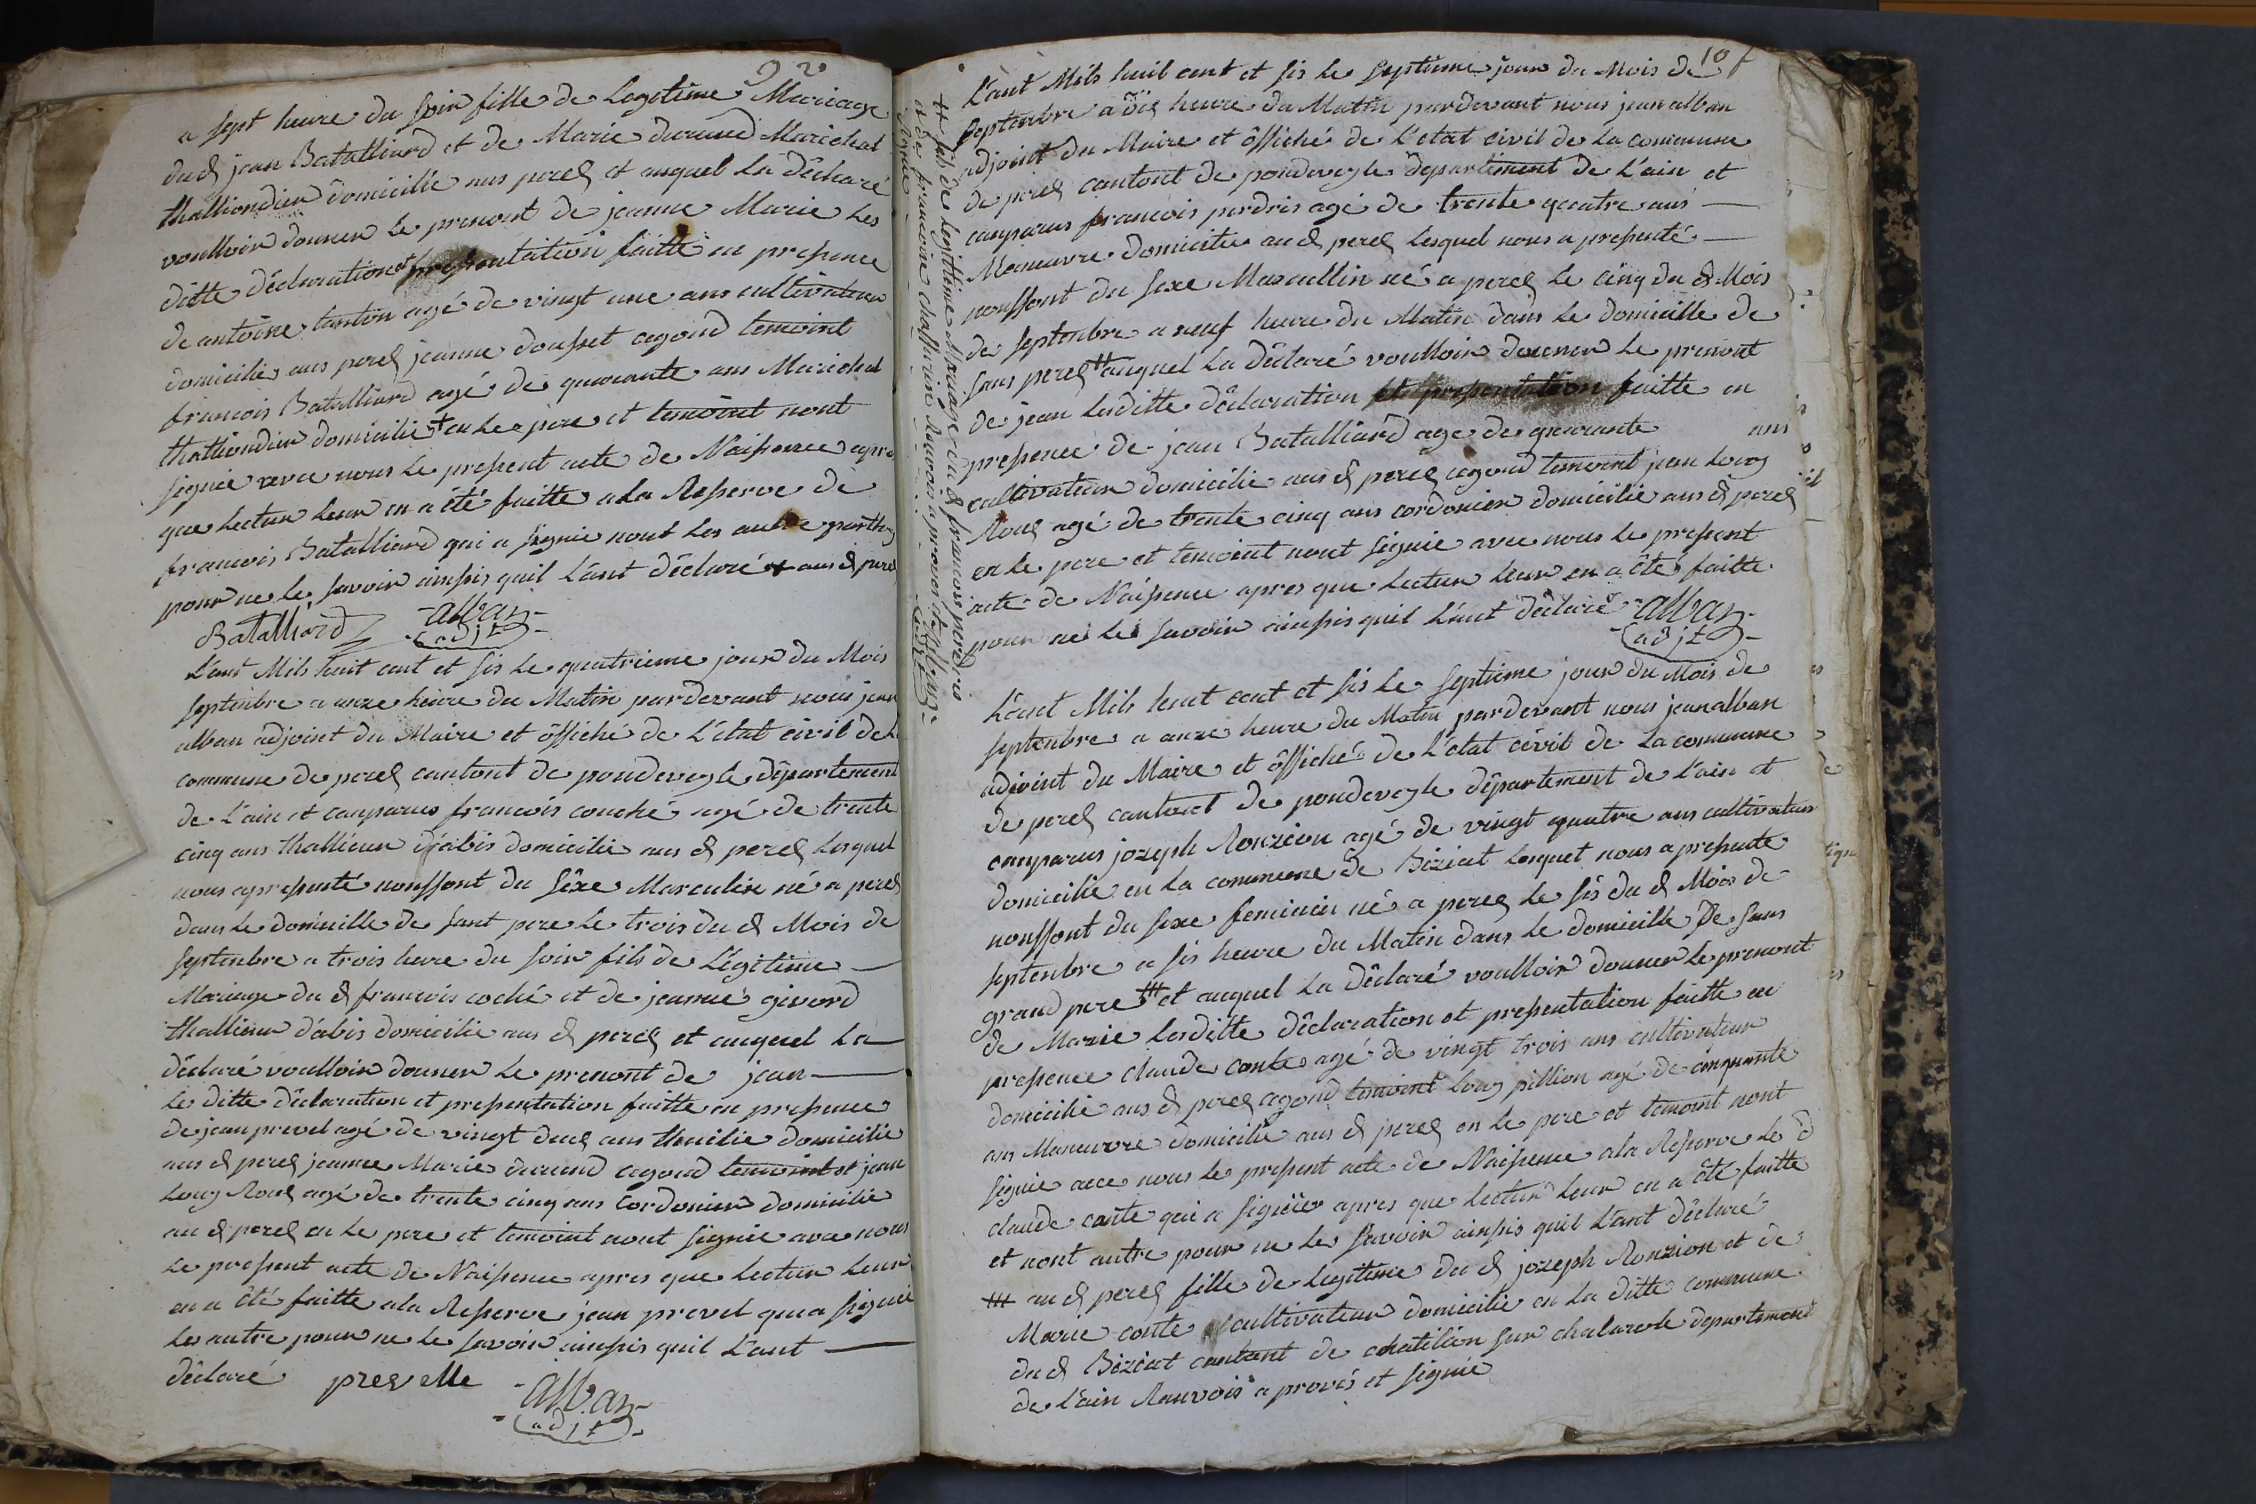 92
a sept heure du soir fille de Legitime Mariage
du d jean Batalliard et de Marie durand Marichal
thalliondier domicilié aus perez et auquel la déclaré
voulloir donner le prenont de jeanne Marie les
ditte déclaration et presentation faitte en presence
de antoine tantin agé de vingt une ans cultivateur
domicilié aus perez jeanne dousset agond temoint
francois Batalliard agé de quarante ans Marichal
thalliondier domicilié + en le pere et temoint nont
signié avec nous le present acte de Naissence apres
que lectur leur en a été faitte a la Reserve de
francois Batalliard qui a signié nont les autre parthy
pour ne le savoir ainssis quil l'ant déclaré + aus d perez
Batalliard alban
adjt
L'ant Mils huit cent et sis le quatrieme jour du Mois
septenbre a onze heure du Matin pardevant nous jean
alban adjoint du Maire et offiché de L'état civil de la
commune de perez cantont de pondevezle département
de L'ain et conparus francois couché agé de trente
cinq ans thallieur d'abis domicilié aus d perez lesquel
nous apresenté nonffont du séxe Masculin né a perez
dans le domicille de sant pere le trois du d Mois de
septenbre a trois heure du soir fils de Légitime
Mariage du d francois coché et de jeanne givord
thallieur d'abis domicilié aus d perez et auquel la
déclaré voulloir donner le prenont de jean
les ditte déclaration et presentation faitte en presence
de jean prevel agé de vingt deuz ans thuilié domicilié
aus d perez jeanne Marie durand agond temoint et jean
Louy Rouz agé de trente cinq ans Cordonier domicilié
au d perez en le pere et temoint nont signié avec nous
le present acte de Naissence apres que lectur leur
en a été faitte a la Reserve jean prevel qui a signié
les autre pour ne le savoir ainssis quil L'ant
déclaré prevelle alban
adjt
++ fils de legittime Mariage du d francois perdris
et de francoise chaffurin Rauvoi a prouvé et
signié alban
adjt
10
L'ant Mils huit cent et sis le septieme jour du Mois de
septenbre a diz heure du Matin pardevant nous jean alban
adjoint du Maire et offiché de L'état civil de la commune
de perez cantont de pondevezle departément de L'ain et
conparus francois perdris agé de trente quatre ans
Maneuvre domicilié au d perez lesquel nous a presenté
nonffont du sexe Mascullin né a perez le cinq du d Mois
de septenbre a neuf heure du Matin dans le domicille de
sans perez ++ auquel la déclaré voulloir donner le prenont
de jean lesditte déclaration et presentation faitte en
presence de jean Batalliard age de quarante ans
cultivateur domicilié aus d perez agond temoint jean Louy
Rouz agé de trente cinq ans cordonier domicilié aus d perez
en le pere et temoint nont signié avec nous le present
acte de Naissence apres que lectur leur en a été faitte
pour ne le savoir ainssis quil L'ant déclaré alban
adjt
L'ant Mils huit cent et sis le septieme jour du Mois de
septenbre a onze heure du Matin pardevant nous jean alban
adjoint du Maire et offiché de L'état civil de la commune
de perez cantont de pondevezle département de L'ain et
conparus jozeph Ronzion agé de vingt quatre ans cultivateur
domicilié en la commune de Biziat lesquel nous a presente
nonffont du sexe feminin né a perez le sis du d Mois de
septenbre a sis heure du Matin dans le domicille de sans
grand pere +++ et auquel la déclaré voulloir donner le prenont
de Marie lesditte déclaration et presentation faitte en
presence claude conte agé de vingt trois ans cultivateur
domicilié aus d perez agond temoint Louy pillion agé de cinquante
ans Maneuvre domicilié aus d perez en le pere et temoint nont
signié avec nous le present acte de Naissence a la Reserve le d
claude conte qui a signiée apres que lectur leur en a été faitte
et nont autre pour ne le savoir ainssis quil L'ant déclaré
+++ au d perez fille de legitime du d jozeph Ronzion et de
Marie conte cultivateur domicilié en la ditte commune
du d Biziat cantont de chatillion sur chalaronle departement
de L'ain Rauvois a provés et signié